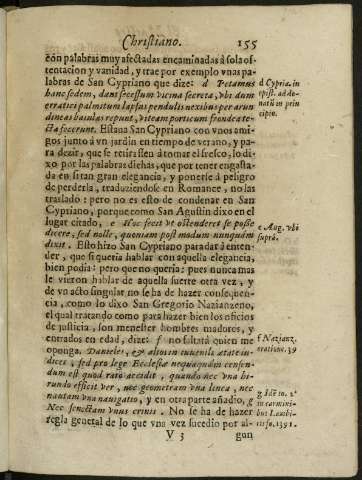 Christiano. 155
con palabras muy afectadas encaminadas à sola os-
tentacion y vanidad, y trae por exemplo vnas pa-
labras de San Cypriano que dize: d Petamus
hanc sedem, dant secessum vicina secreta, vbi dum
erratici palmitum lapsus pendulis nexibus per arun
dineas baiulas repunt, viteam porticum frondea te-
cta fecerunt. Estaua San Cypriano con vnos ami-
gos junto à vn jardin en tiempo de verano, y pa-
ra dezir, que se retirassen à tomar el fresco, lo di-
xo por las palabras dichas, que por tener engasta-
da en si tan gran elegancia, y ponerse à peligro
de perderla, traduziendose en Romance, no las
traslado: pero no es esto de condenar en San
Cypriano, porque como San Agustin dixo en el
lugar citado, e Hoc fecit vt ostenderet se posse
dicere, sed nolle, quoniam postmodum nunquàm
dixit. Esto hizo San Cypriano para dar à enten-
der, que si queria hablar con aquella elegancia,
bien podia: pero que no queria: pues nunca mas
le vieron hablar de aquella suerte otra vez, y
de vn acto singular no se ha de hazer consequen-
cia, como lo dixo San Gregorio Nazianzeno,
el qual tratando como para hazer bien los oficios
de justicia, son menester hombres maduros, y
entrados en edad, dize: f no faltatà quien me
oponga. Danieles, & alios in iuuenili ætate iudi-
ces, sed pro lege Ecclesiæ nequaquàm censen-
dum est quod raro accidit, quando nec vna hi-
rundo efficit ver, nec geometram vna linea, nec
nautam vna nauigatio, y en otra parte añadio, g
Nec senectam vnus crinis. No se ha de hazer
regla general de lo que vna vez sucedio por al-
V 3 gun
d Cypria. in
epist. ad do-
natũ in prin
cipio.
e Aug. vbi
suprà.
f Nazianz.
oratione. 39
g Idẽ to. 2
in carmini-
bus